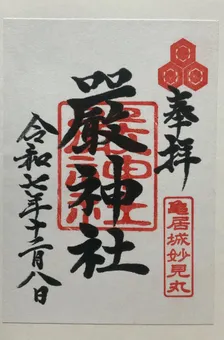 奉拝
亀居城妙見丸
嚴神社
令和七年十二月八日